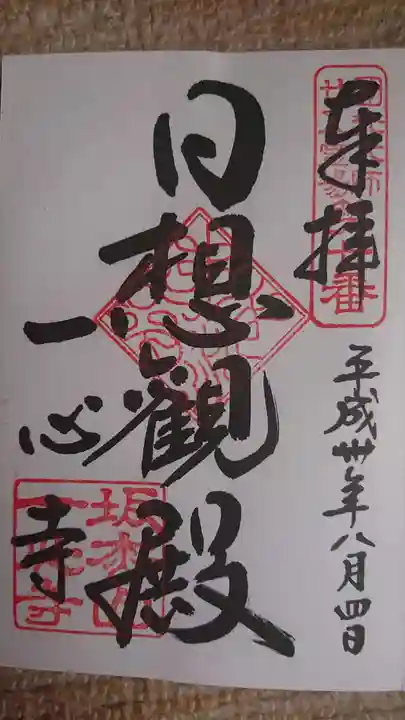 奉拝
平成卅年八月四日
日想觀殿
一心寺
坂松山
一心寺